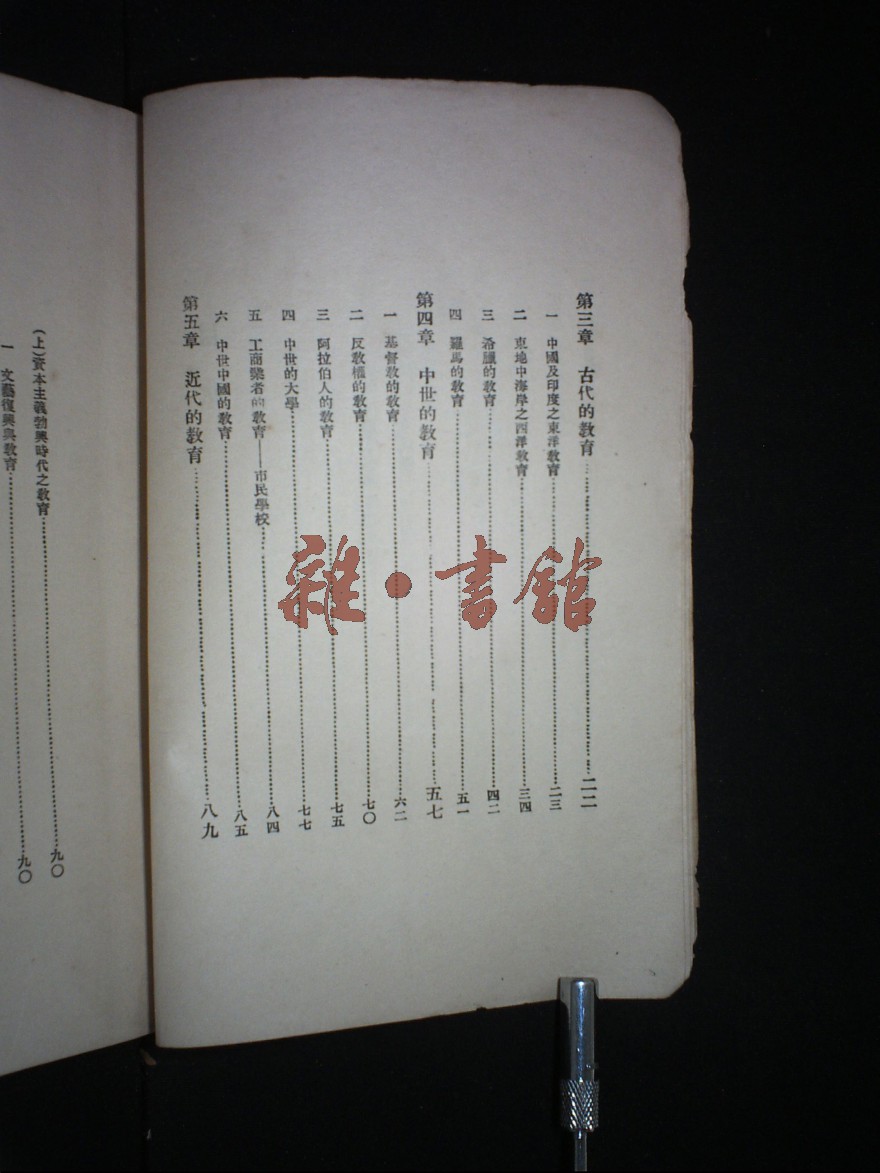 第三章　古代的教育……二二
一　中國及印度之東洋教育……二三
二　東地中海學之西洋教育……三四
三　希臘的教育……四二
四　羅馬的教育……五一
第四章　中世的教育……五七
一　基督教的教育……六二
二　反教權的教育……七〇
三　阿拉伯人的教育……七五
四　中世的大學……七七
五　工商業者的教育——市民學校……八四
六　中世中國的教育……八五
第五章　近代的教育……八九
(上)資本主義勃興時代之教育……九〇
一　文藝復興與教育……九〇
雜·書館